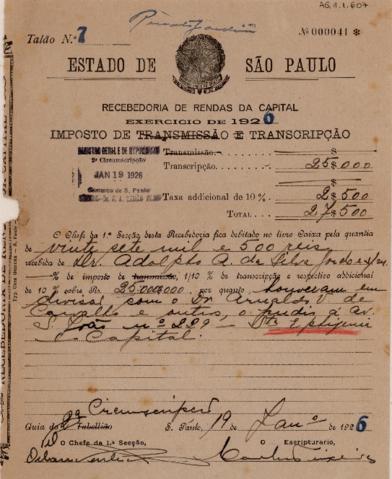 A6.1.1.607
Talão N.º 7
Nº 000041 *
ESTADO DE SÃO PAULO
RECEBEDORIA DE RENDAS DA CAPITAL
EXERCICIO DE 1926
IMPOSTO DE TRANSMISSÃO E TRANSCRIPÇÃO
REGISTRO GERAL E DE HYPOTHECAS
2ª Circumscripção
JAN 19 1926
Comarca de S. Paulo
Transmissão. $
Transcripção. 25$000
Taxa addicional de 10% 2$500
TOTAL 27$500
O Chefe da 1ª Secção desta Recebedoria fica debitado no livro Caixa pela quantia
de vinte sete mil e 500 reis
recebida de Dr. Adolpho A. da Silva Gordo
% de imposto de transmissão, 1/10 % de transcripção e respectivo addicional
de 10 % sobre Rs. 25:000$000 por quanto houveram em
divisão com o Dr. Arnaldo V. de
Carvalho e outros, o predio á Av.
S. João nº 299 - Sta Ephigenia
Capital.
2ª Circumscripção
Guia do Tabellião
S. Paulo, 19 de Janº de 1926
O Chefe da 1.ª Secção,
O Escripturario,